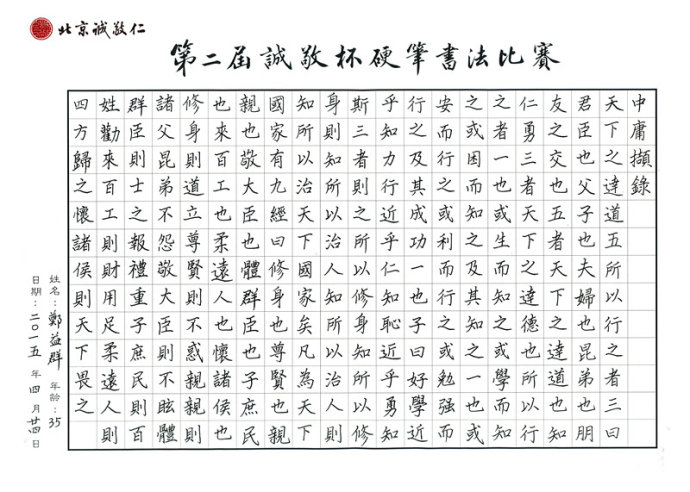 北京誠敬仁
第二屆誠敬杯硬筆書法比賽
中庸擷錄
天下之達道五所以行之者三曰
君臣也父子也夫婦也昆弟也朋
友之交也五者天下之達道也知
仁勇三者天下之達德也所以行
之者一也或生而知之或學而知
之或困而知之及其知之一也或
安而行之或利而行之或勉強而
行之及其成功一也子曰好學近
乎知力行近乎仁知恥近乎勇知
斯三者則知所以修身知所以修
身則知所以治人知所以治人則
知所以治天下國家矣凡為天下
國家有九經曰修身也尊賢也親
親也敬大臣也體群臣也子庶民
也來百工也柔遠人也懷諸侯也
修身則道立尊賢則不惑親親則
諸父昆弟不怨敬大臣則不眩體
群臣則士之報禮重子庶民則百
姓勸來百工則財用足柔遠人則
四方歸之懷諸侯則天下畏之
姓名：鄭益群 年齡：35
日期：二〇一五 年 四 月 廿四 日